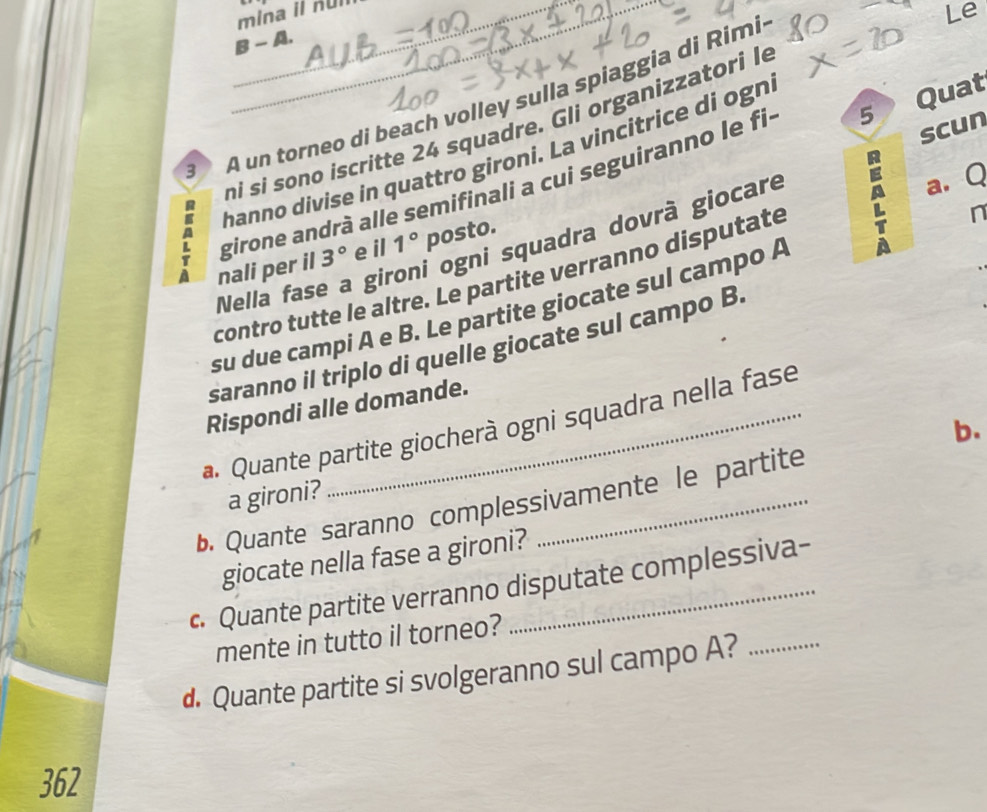 mina il
B – A.
AUB = 100
100 = 3x + 20
100 = 3x + x + 20
80
x = 20
Le
3 A un torneo di beach volley sulla spiaggia di Rimi-
ni si sono iscritte 24 squadre. Gli organizzatori le
hanno divise in quattro gironi. La vincitrice di ogni
girone andrà alle semifinali a cui seguiranno le fi-
nali per il 3° e il 1° posto.
Nella fase a gironi ogni squadra dovrà giocare
contro tutte le altre. Le partite verranno disputate
su due campi A e B. Le partite giocate sul campo A
saranno il triplo di quelle giocate sul campo B.
Rispondi alle domande.
REALTÀ
a. Quante partite giocherà ogni squadra nella fase
a gironi?
b. Quante saranno complessivamente le partite
giocate nella fase a gironi?
c. Quante partite verranno disputate complessiva-
mente in tutto il torneo?
d. Quante partite si svolgeranno sul campo A?
362
5 Quat
scun
REALTÀ
a. Q
b.